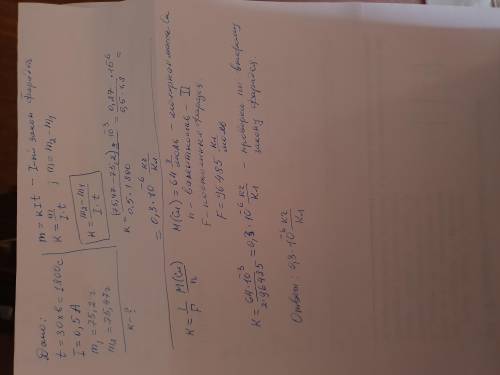 Дано:
t = 30×6 = 1800 с
I = 0,5 А
m₁ = 75,2 г
m₂ = 75,47 г
к - ?
m = кIt - I-ый закон Фарадея
к = m/(I·t) ; m = m₂ - m₁
к = (m₂ - m₁)/(I·t)
к = ((75,47 - 75,2) × 10⁻³)/(0,5·1800) = (0,27 · 10⁻⁶)/(0,5·1,8) =
= 0,3 · 10⁻⁶ кг/Кл
к = 1/F · M(Cu)/n
M(Cu) = 64 г/моль - молярная масса Cu
n - валентность - II
F - постоянная Фарадея
F = 96485 Кл/моль
к = (64·10⁻³)/(2·96485) = 0,3 · 10⁻⁶ кг/Кл - проверка по второму
закону Фарадея.
Ответ: 0,3·10⁻⁶ кг/Кл